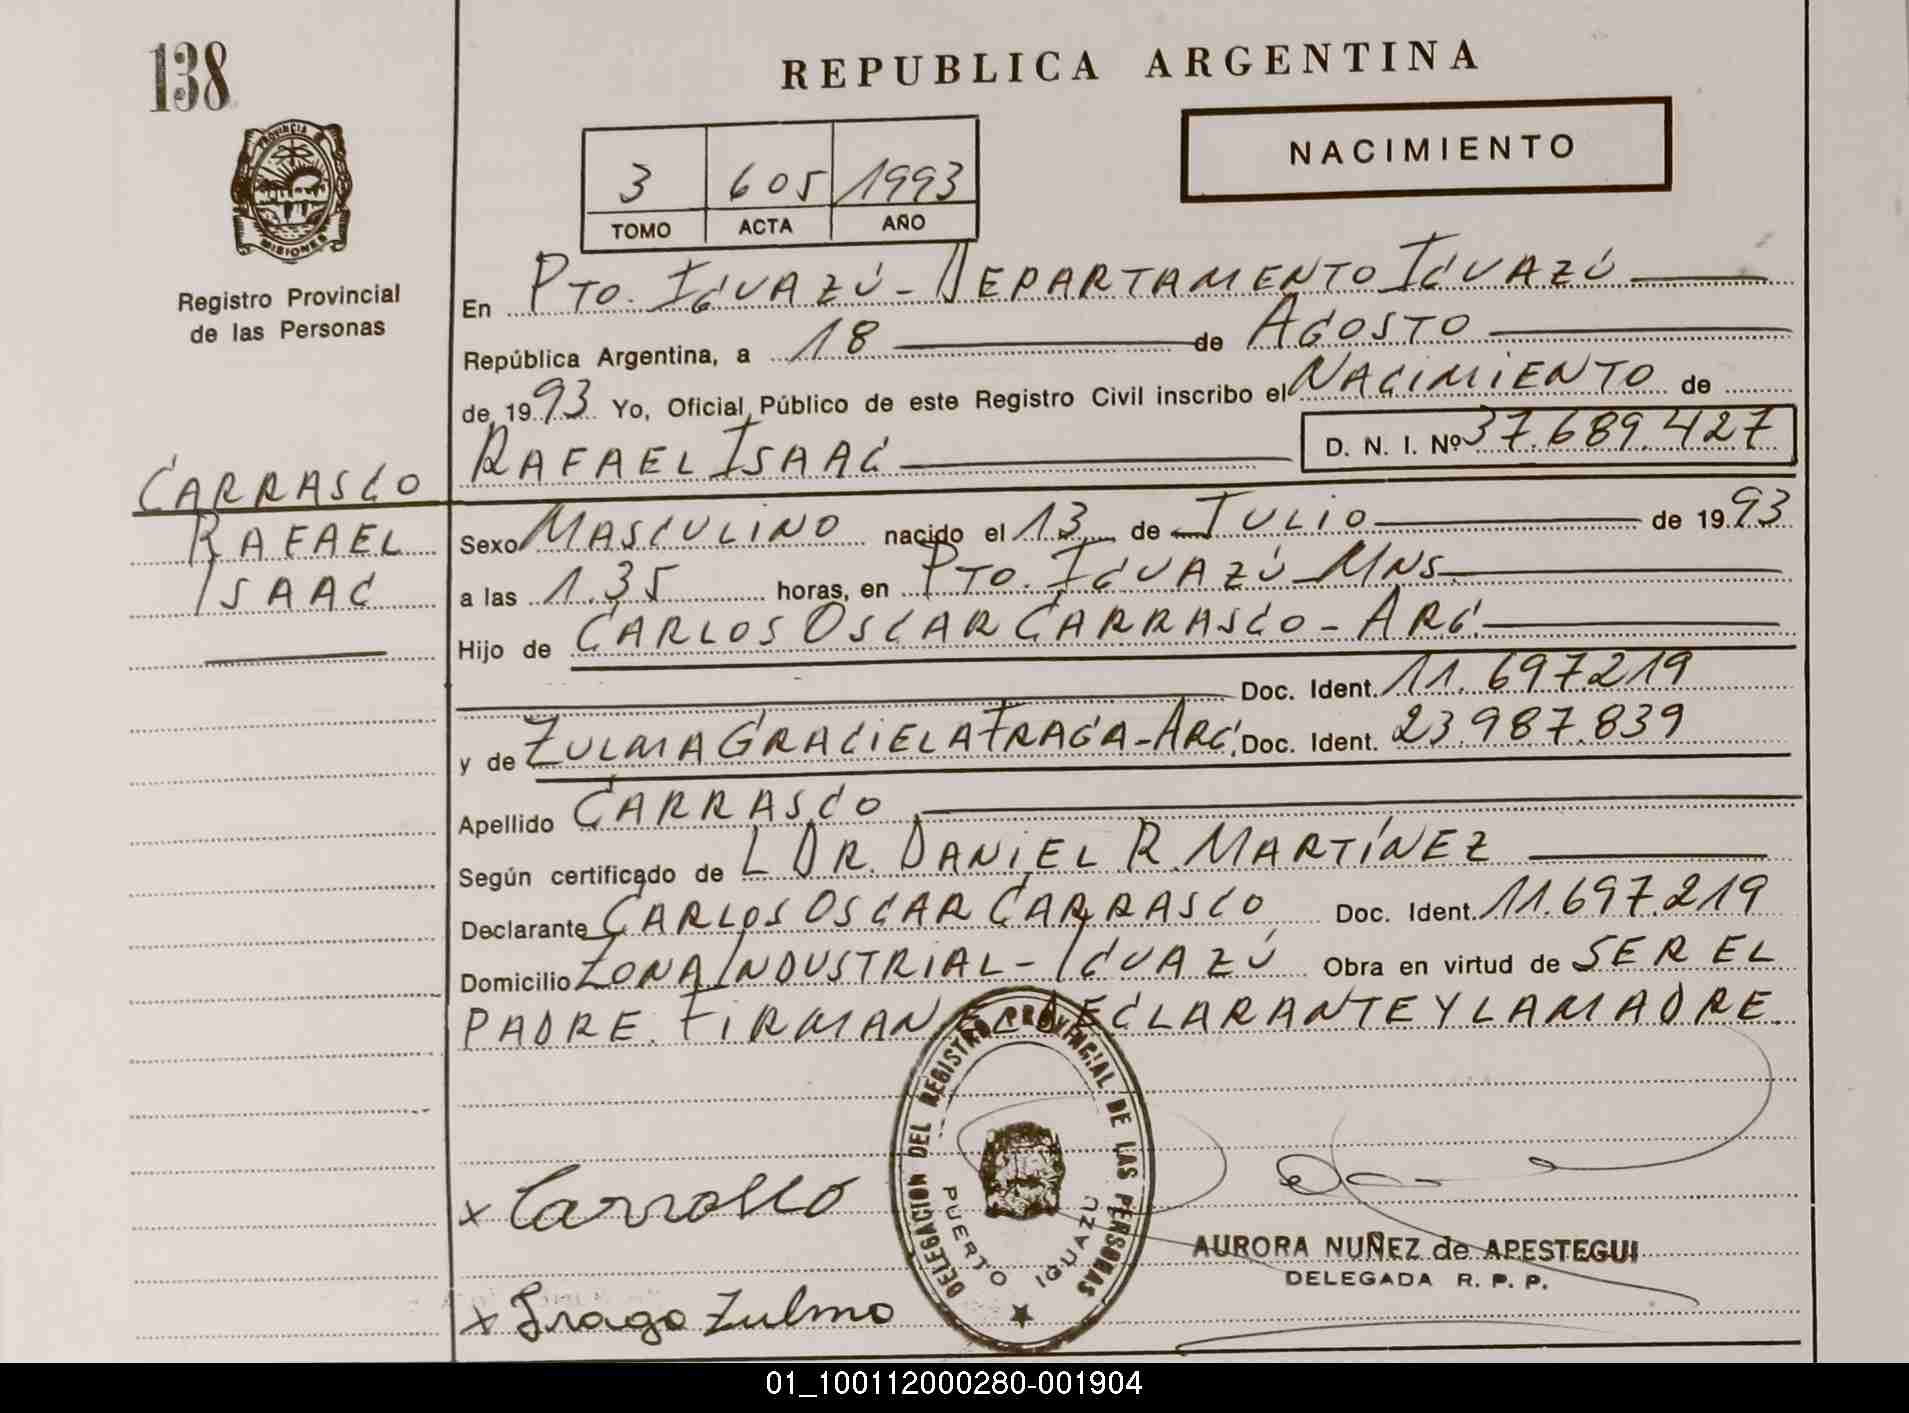 138
REPUBLICA ARGENTINA
NACIMIENTO
PROVINCIA DE
MISIONES
Registro Provincial
de las Personas
3 605 1993
TOMO ACTA AÑO
En PTO. IGUAZÚ - DEPARTAMENTO IGUAZÚ
República Argentina, a 18 de AGOSTO
de 1993 Yo, Oficial Público de este Registro Civil inscribo el NACIMIENTO de
RAFAEL ISAAC D. N. I. Nº 37.689.427
CARRASCO
RAFAEL
ISAAC
Sexo MASCULINO nacido el 13 de JULIO de 1993
a las 1.35 horas, en PTO. IGUAZÚ - MNS.
Hijo de CARLOS OSCAR CARRASCO - ARG.
Doc. Ident. 11.697.219
y de ZULMA GRACIELA FRAGA - ARG. Doc. Ident. 23.987.839
Apellido CARRASCO
Según certificado de L DR. DANIEL R. MARTÍNEZ
Declarante CARLOS OSCAR CARRASCO Doc. Ident. 11.697.219
Domicilio ZONA INDUSTRIAL - IGUAZÚ Obra en virtud de SER EL
PADRE. FIRMAN EL DECLARANTE Y LA MADRE.
DELEGACION DEL REGISTRO PROVINCIAL DE LAS PERSONAS
PUERTO IGUAZU
x Carrasco
AURORA NUÑEZ de APESTEGUI
DELEGADA R. P. P.
x Fraga Zulma
01_100112000280-001904